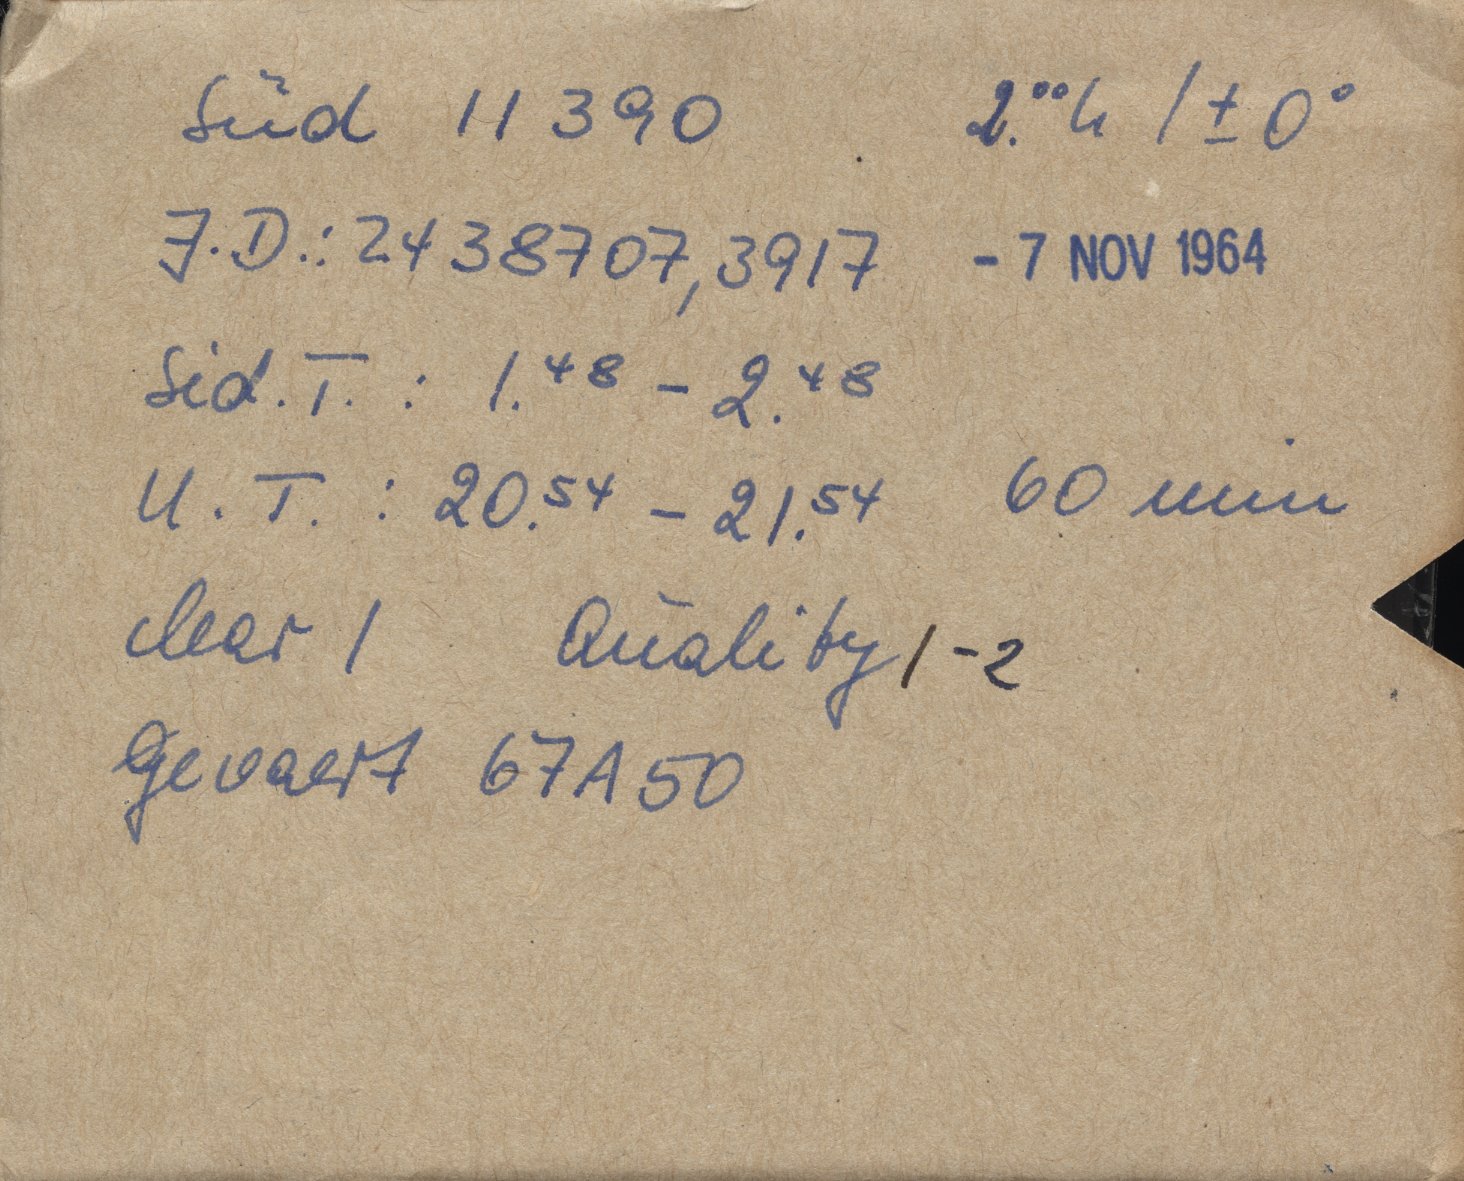 Süd 11390 2.ººh / ± 0°
J.D.: 2438707,3917 - 7 NOV 1964
Sid.T. : 1.⁴⁸ – 2.⁴⁸
U.T. : 20.⁵⁴ – 21.⁵⁴ 60 min
clear 1 Quality 1-2
Gevaert 67A50